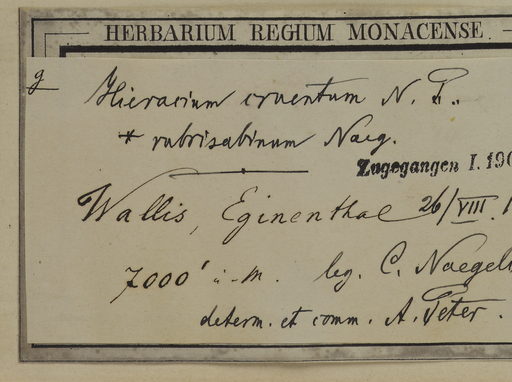 HERBARIUM REGIUM MONACENSE.
g
Hieracium cruentum N. P.
* rubrisabinum Naeg.
Zugegangen I. 190
Wallis, Eginenthal 26/VIII. 1
7000' ü. M. leg. C. Naegeli
determ. et comm. A. Peter.